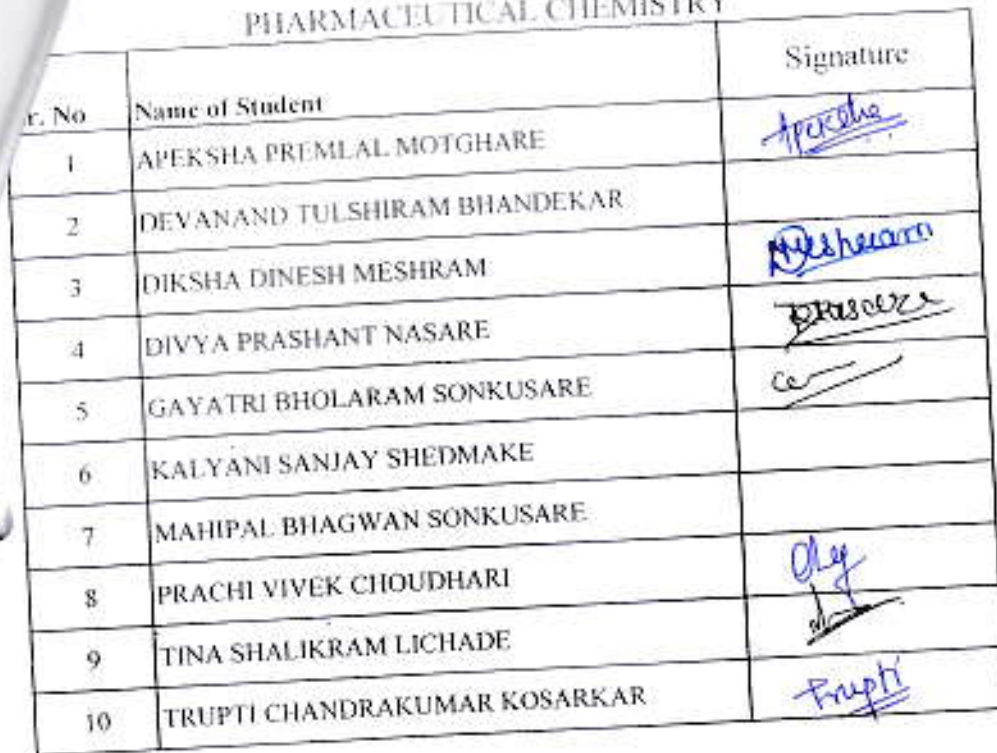 PHARMACEUTICAL CHEMISTRY
r. No Name of Student Signature
1 APEKSHA PREMLAL MOTGHARE Apeksha
2 DEVANAND TULSHIRAM BHANDEKAR
3 DIKSHA DINESH MESHRAM Meshram
4 DIVYA PRASHANT NASARE
5 GAYATRI BHOLARAM SONKUSARE
6 KALYANI SANJAY SHEDMAKE
7 MAHIPAL BHAGWAN SONKUSARE
8 PRACHI VIVEK CHOUDHARI
9 TINA SHALIKRAM LICHADE
10 TRUPTI CHANDRAKUMAR KOSARKAR Trupti